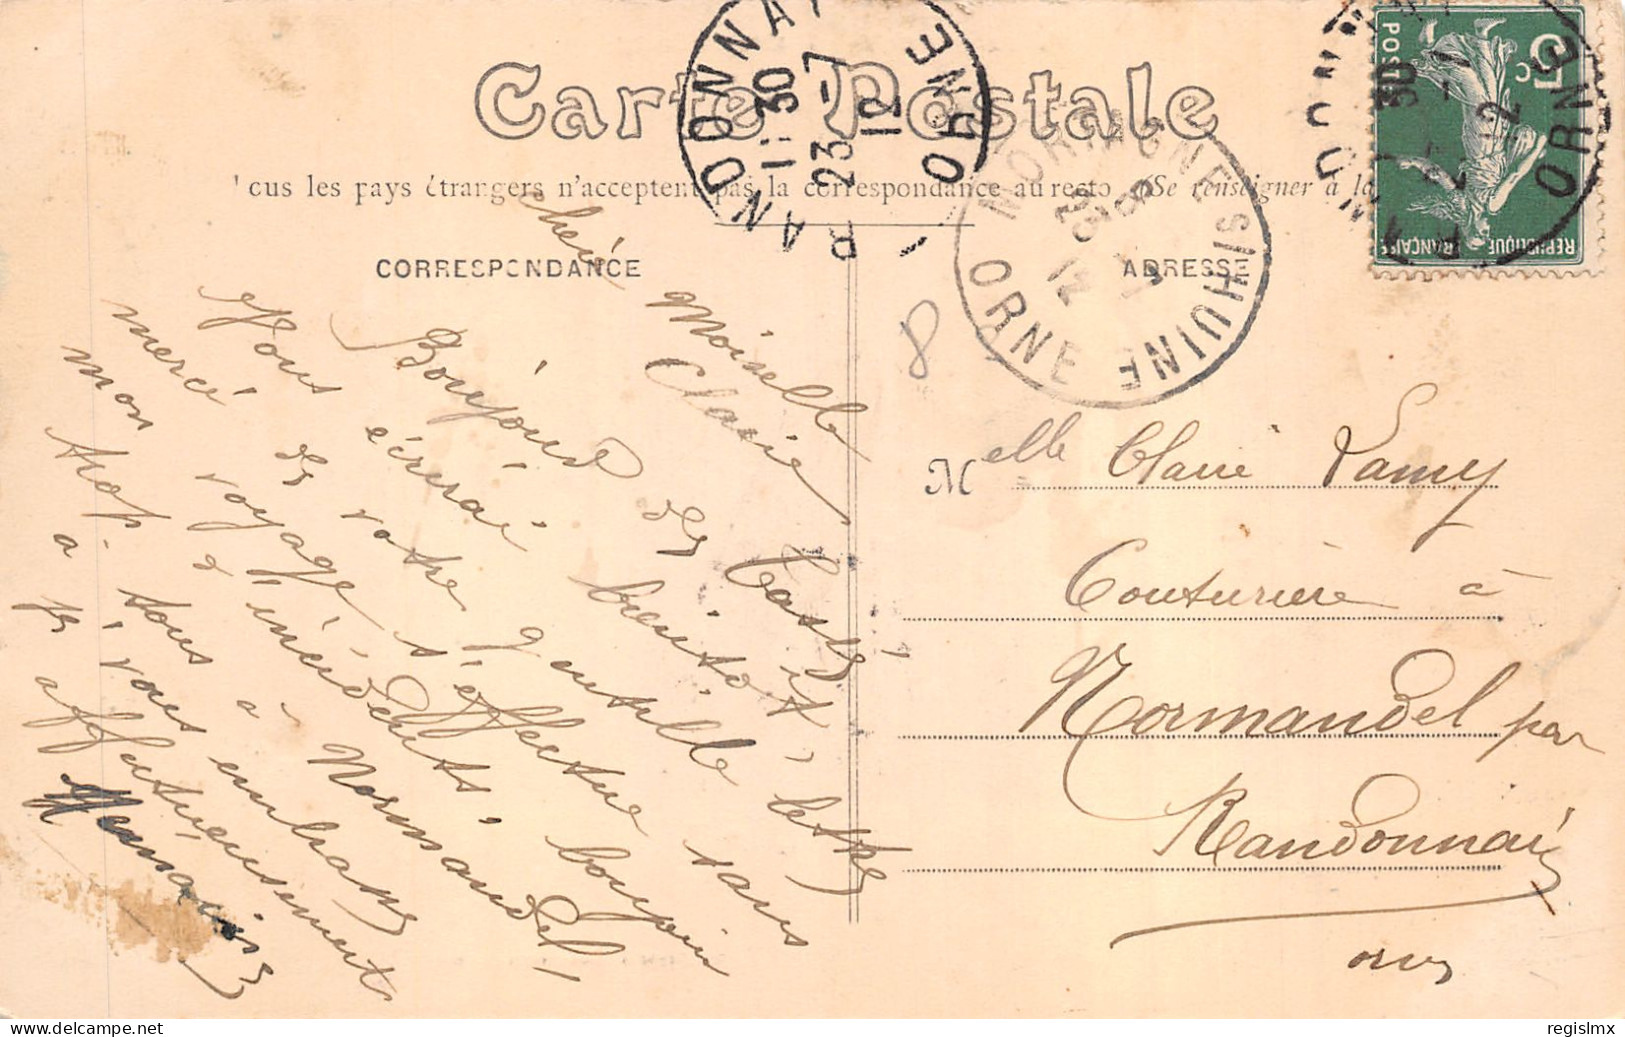 Carte Postale
Tous les pays étrangers n'acceptent pas la correspondance au recto (Se renseigner à la
CORRESPONDANCE
ADRESSE
RANDONNAI
11:30
23-7
12
ORNE
MORTAGNE S/HUINE
ORNE
5c
POSTES
REPUBLIQUE FRANÇAISE
ORNE
8
chère Moiselle
Claire
Bonjour de
Vous écrirai bientôt, lettre
merci de votre gentille
mon voyage s'effectue sans
trop d'incidents, bonjour
à tous à Normandel,
je vous embrasse
affectueusement
Melle Claire Lamy
Couturière à
Normandel par
Randonnai
orne
regislmx